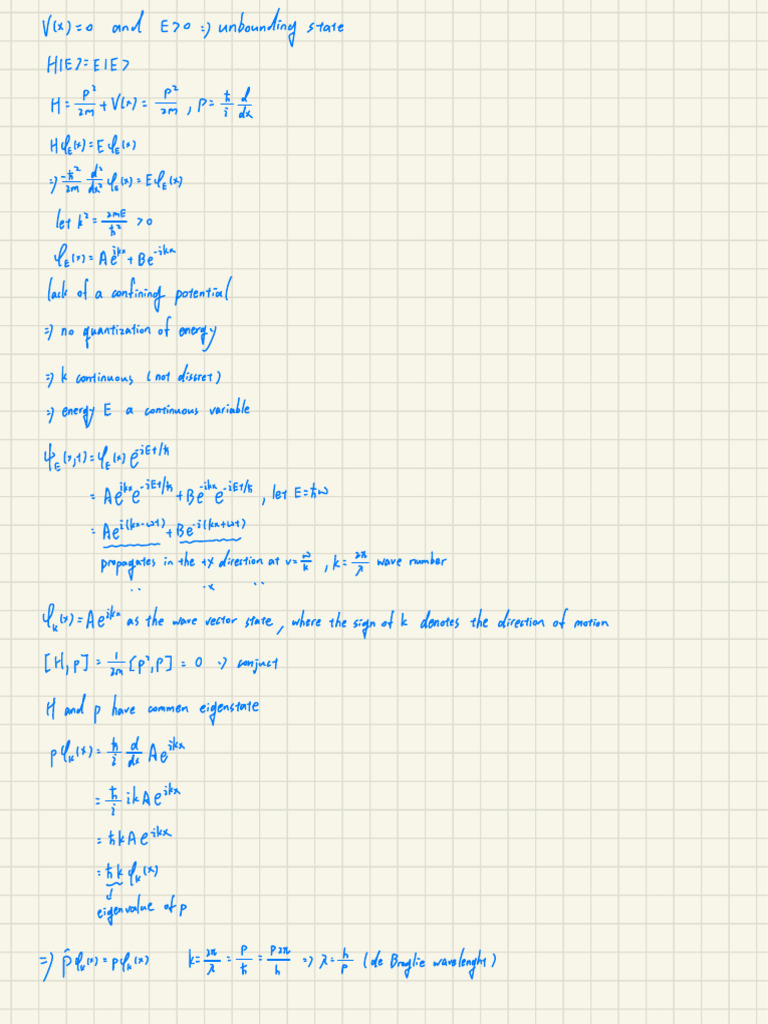 V(x)=0 and E>0 => unbounding state
H|E>=E|E>
H=p²/2m+V(x)=p²/2m, p=ħ/i d/dx
Hφ_E(x)=Eφ_E(x)
=> -ħ²/2m d²/dx² φ_E(x)=Eφ_E(x)
let k²=2mE/ħ² >0
φ_E(x)=Ae^{ikx}+Be^{-ikx}
lack of a confining potential
=> no quantization of energy
=> k continuous (not discret)
=> energy E a continuous variable
ψ_E(x,t)=φ_E(x)e^{-iEt/ħ}
=Ae^{ikx}e^{-iEt/ħ}+Be^{-ikx}e^{-iEt/ħ}, let E=ħω
=Ae^{i(kx-ωt)}+Be^{-i(kx+ωt)}
propagates in the +x direction at v=ω/k, k=2π/λ wave number
'' -x ''
φ_k(x)=Ae^{ikx} as the wave vector state, where the sign of k denotes the direction of motion
[H,p]=1/2m[p²,p]=0 => conjuct
H and p have commen eigenstate
pφ_k(x)=ħ/i d/dx Ae^{ikx}
=ħ/i ikAe^{ikx}
=ħkAe^{ikx}
=ħkφ_k(x)
eigenvalue of p
=> p̂φ_k(x)=pφ_k(x) k=2π/λ=p/ħ=p2π/h => λ=h/p (de Broglie wavelenght)